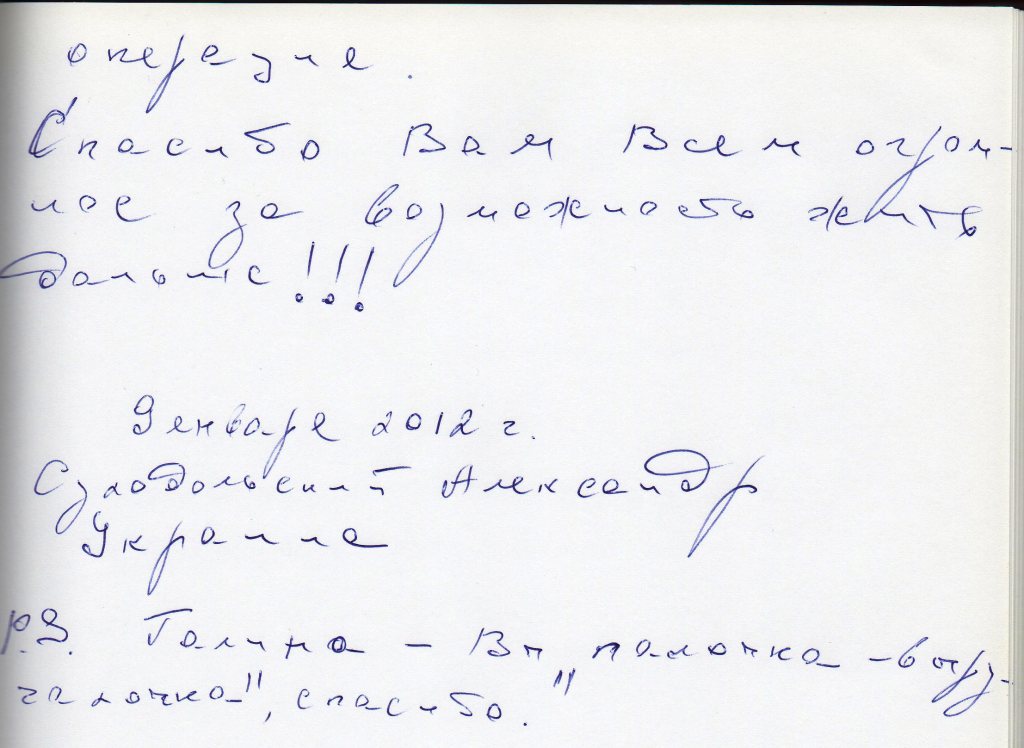 операции.
Спасибо Вам Всем огром-
ное за возможность жить
дальше!!!
Январь 2012 г.
Суходольский Александр
Украина
P.S. Галина – Вы "палочка-выру-
чалочка", спасибо.